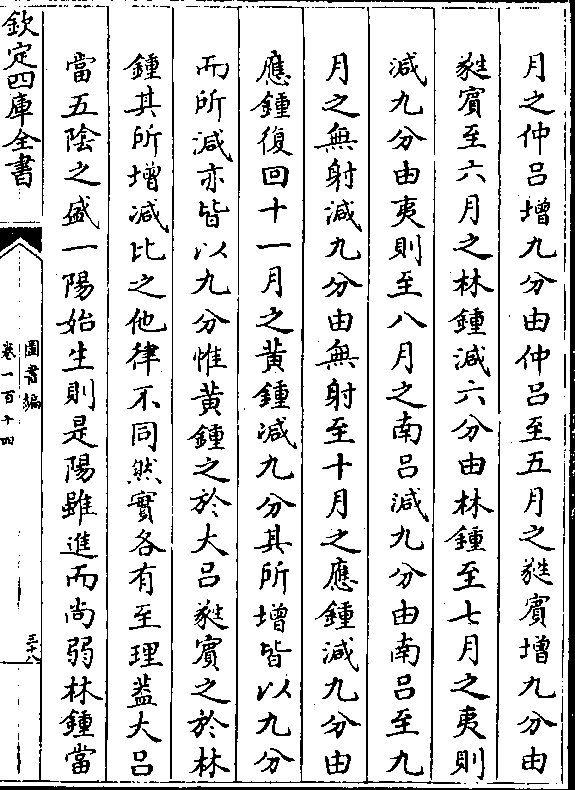 月之仲呂增九分由仲呂至五月之蕤賓增九分由
蕤賓至六月之林鍾減六分由林鍾至七月之夷則
減九分由夷則至八月之南呂減九分由南呂至九
月之無射減九分由無射至十月之應鍾減九分由
應鍾復回十一月之黄鍾減九分其所增皆以九分
而所減亦皆以九分惟黄鍾之於大呂蕤賓之於林
鍾其所增減比之他律不同然實各有至理葢大呂
當五陰之盛一陽始生則是陽雖進而尚弱林鍾當
欽定四庫全書
圖書編
卷一百十四
三十八